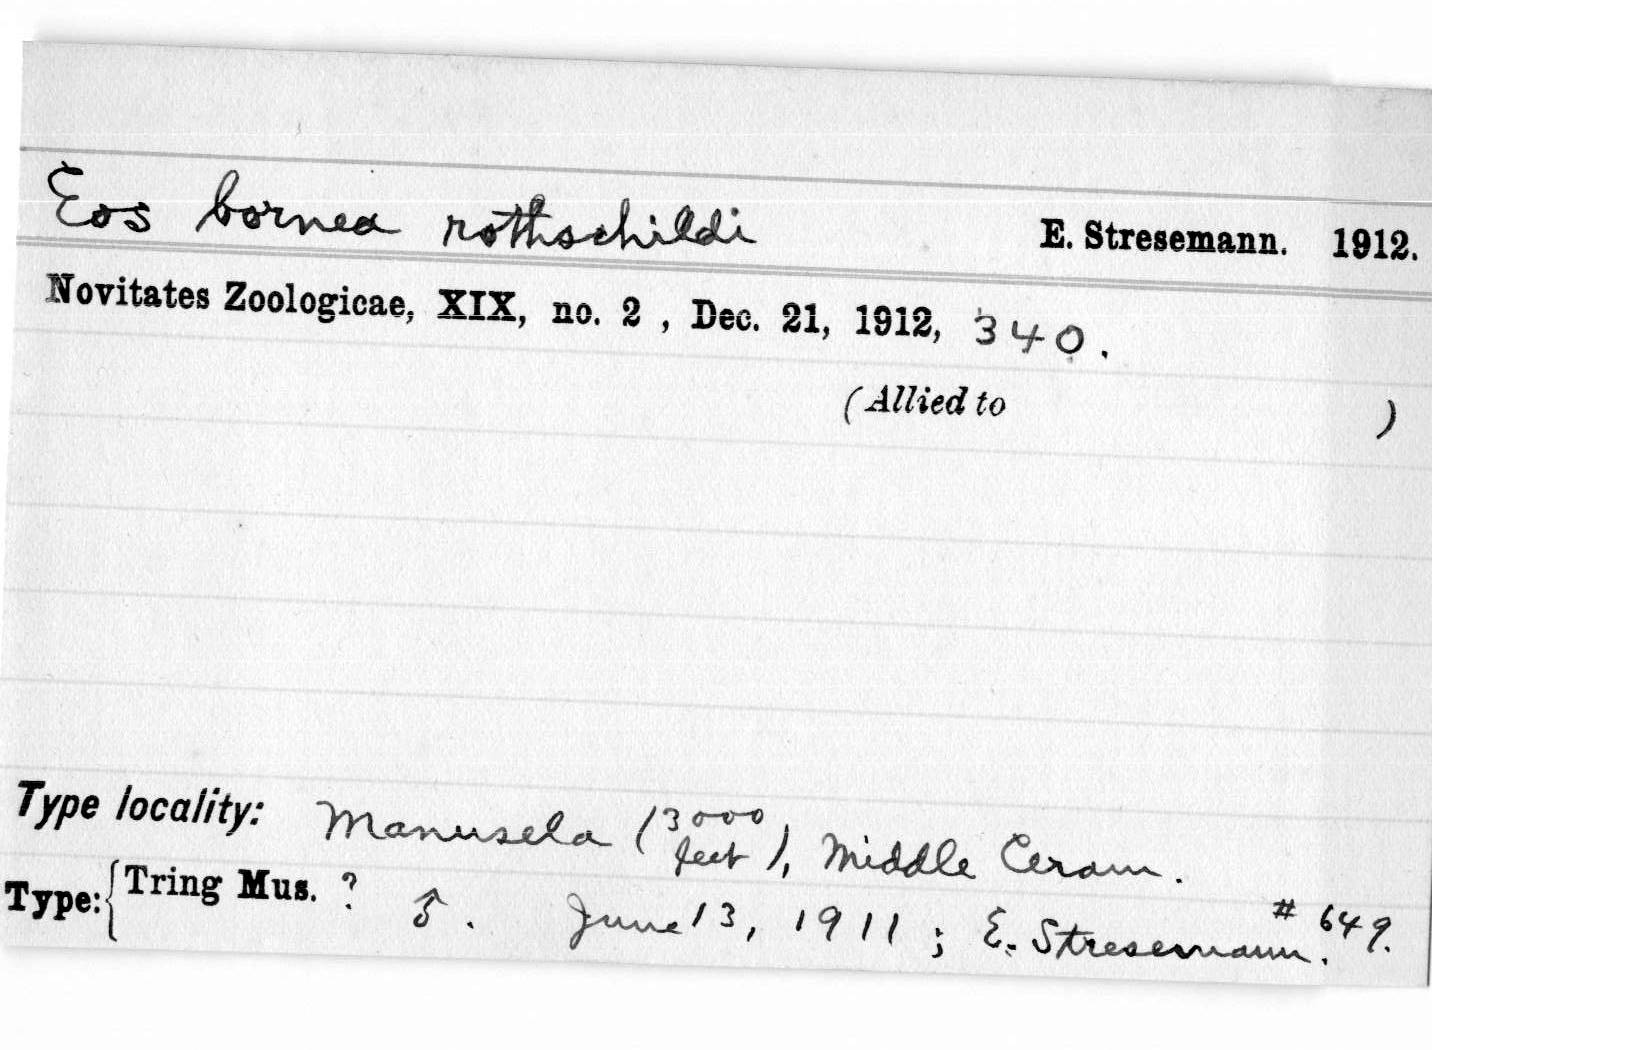 Eos bornea rothschildi E. Stresemann. 1912.
Novitates Zoologicae, XIX, no. 2 , Dec. 21, 1912, 340.
(Allied to )
Type locality: Manusela (3000 feet), Middle Ceram.
Type: { Tring Mus. ? ♂. June 13, 1911 ; E. Stresemann. # 649.